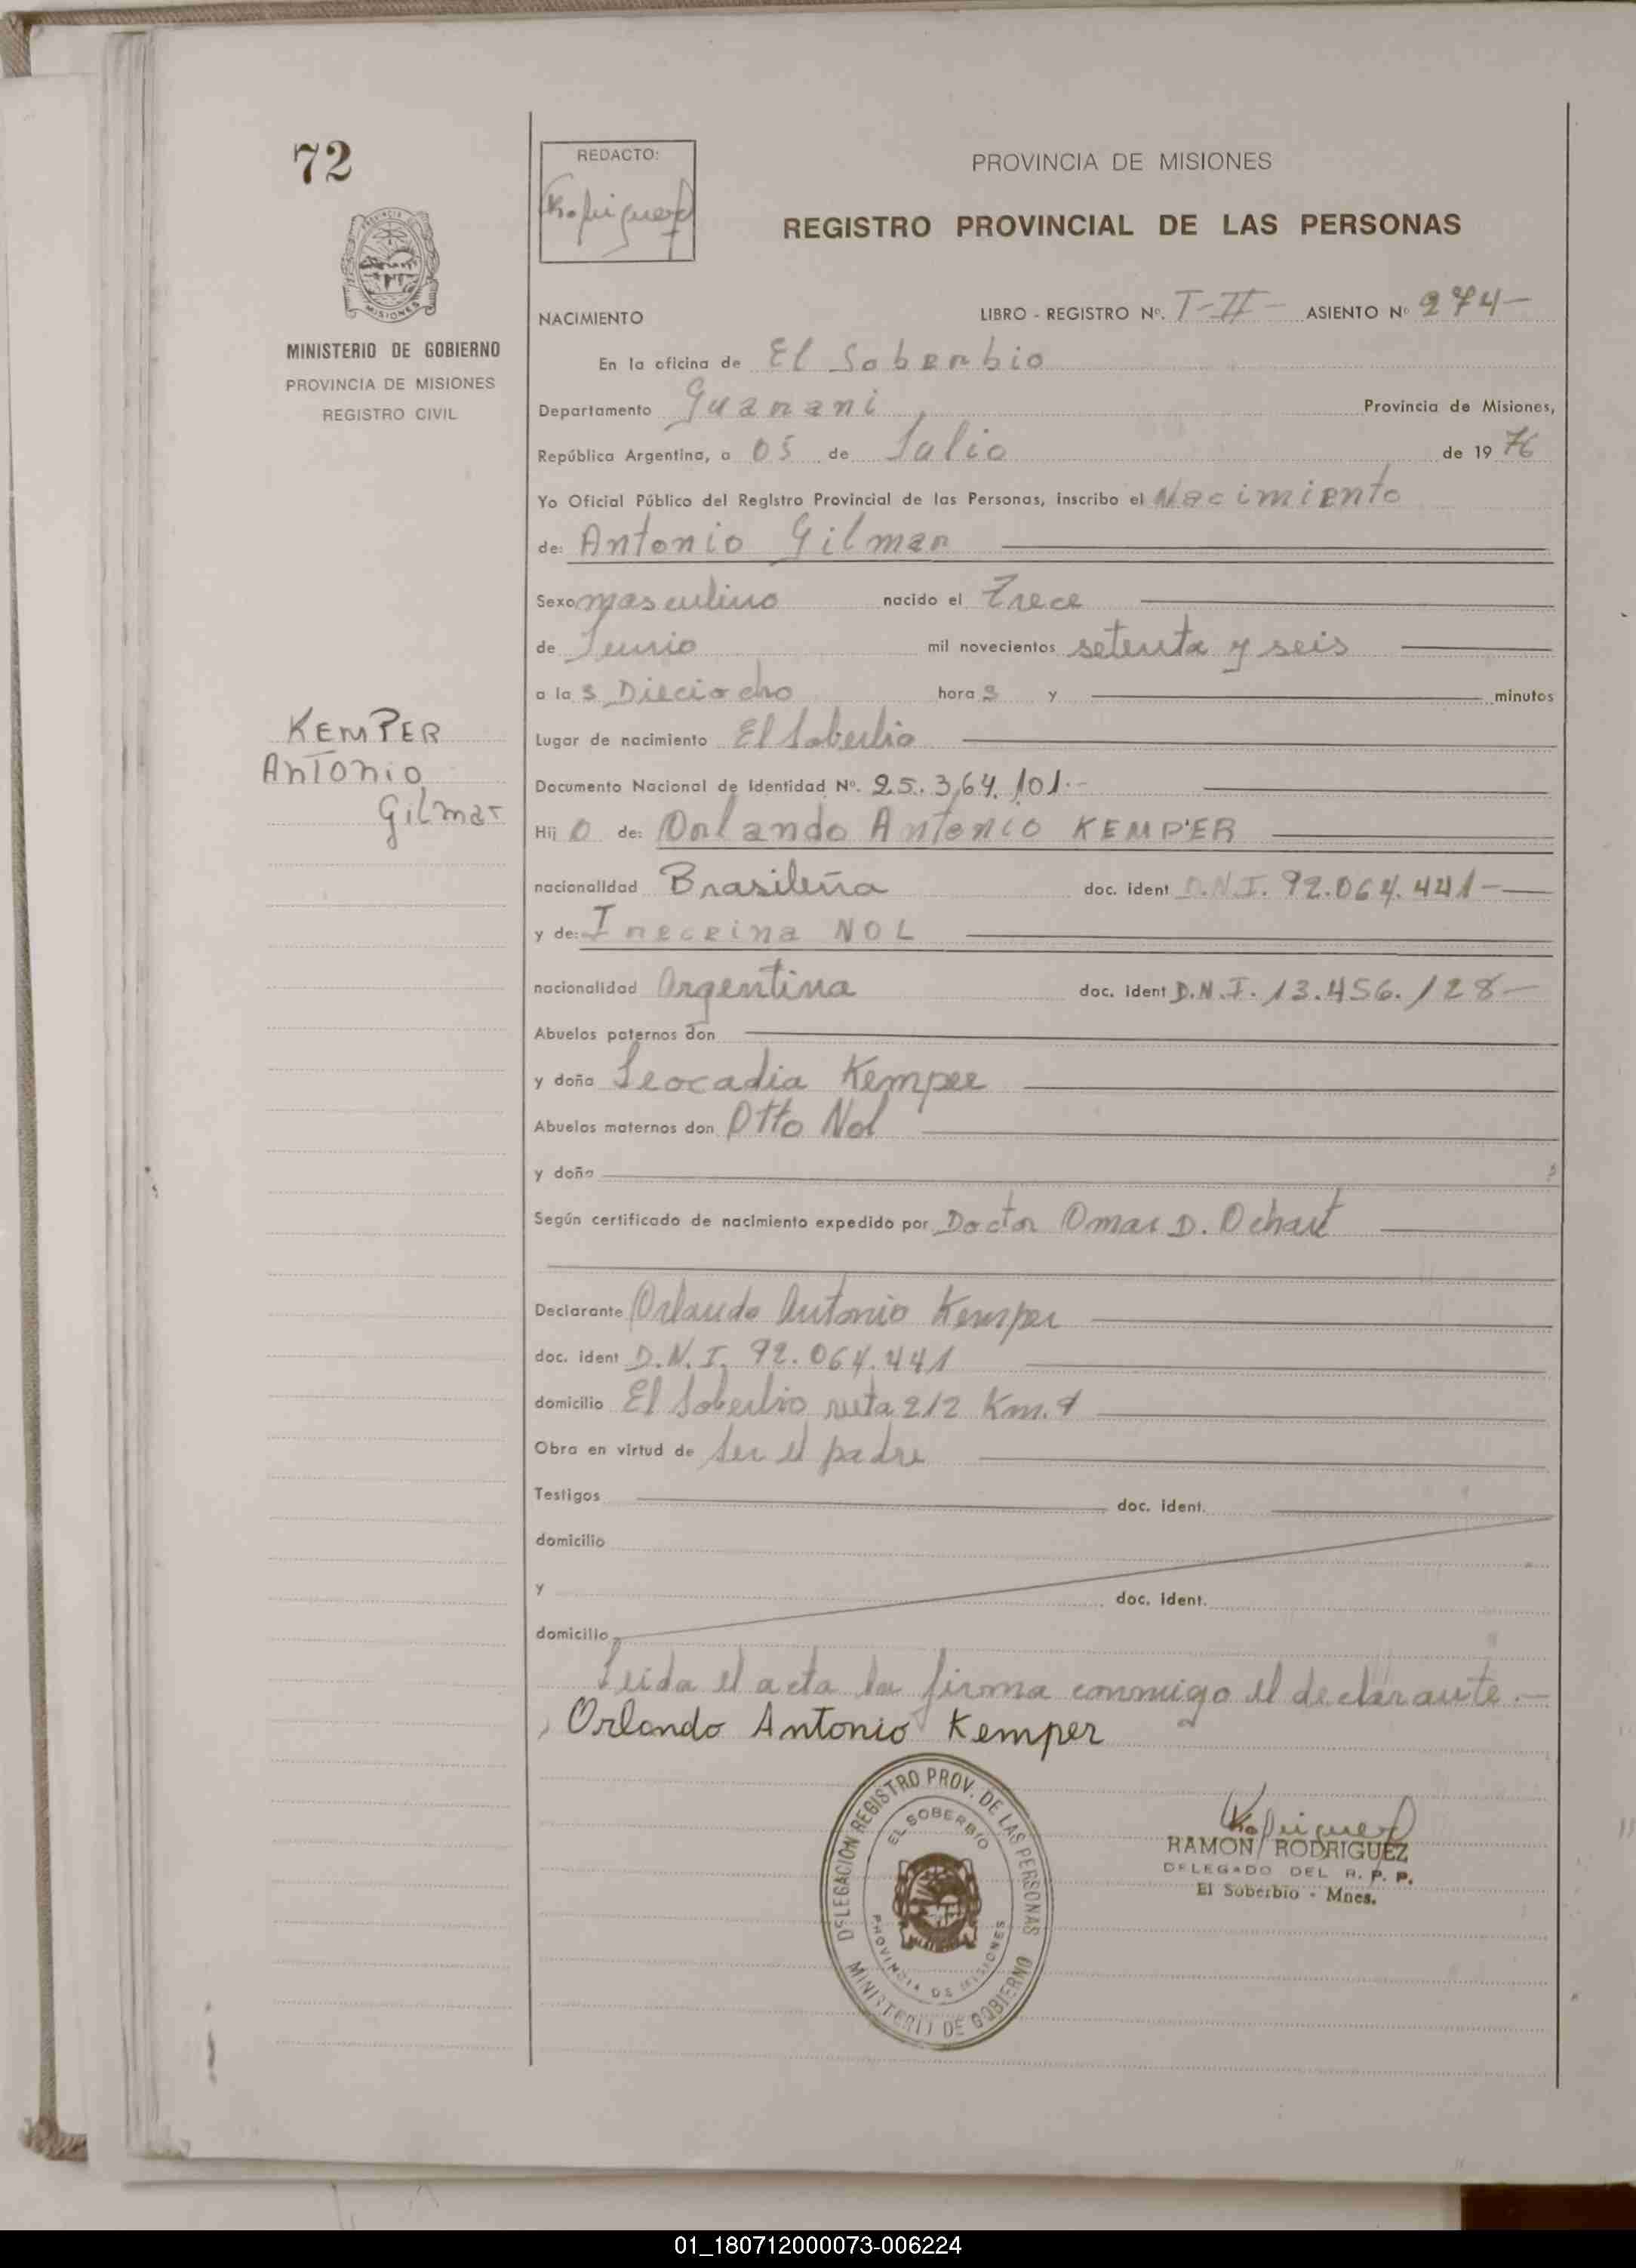 72
REDACTO:
PROVINCIA DE MISIONES
REGISTRO PROVINCIAL DE LAS PERSONAS
MISIONES
MINISTERIO DE GOBIERNO
PROVINCIA DE MISIONES
REGISTRO CIVIL
NACIMIENTO
LIBRO - REGISTRO Nº. T-II- ASIENTO Nº 274-
En la oficina de El Soberbio
Departamento Guarani Provincia de Misiones,
República Argentina, a 05 de Julio de 1976
Yo Oficial Público del Registro Provincial de las Personas, inscribo el Nacimiento
de: Antonio Gilmar
Sexo masculino nacido el Trece
de Junio mil novecientos setenta y seis
a las Dieciocho horas y minutos
KEMPER
Antonio
Gilmar
Lugar de nacimiento El Soberbio
Documento Nacional de Identidad Nº. 25.364.101.-
Hijo de: Orlando Antonio KEMPER
nacionalidad Brasileña doc. ident D.N.I. 92.064.441-
y de: NOL
nacionalidad Argentina doc. ident D.N.I. 13.456.128-
Abuelos paternos don
y doña Leocadia Kemper
Abuelos maternos don Otto Nol
y doña
Según certificado de nacimiento expedido por Doctor Omar D.
Declarante Orlando Antonio Kemper
doc. ident D.N.I. 92.064.441
domicilio El Soberbio ruta 212 Km.
Obra en virtud de ser el padre
Testigos doc. ident.
domicilio
y doc. ident.
domicilio
Leida el acta la firma conmigo el declarante.-
Orlando Antonio Kemper
DELEGACION REGISTRO PROV. DE LAS PERSONAS
EL SOBERBIO
PROVINCIA DE MISIONES
MINISTERIO DE GOBIERNO
RAMON RODRIGUEZ
DELEGADO DEL R. P. P.
El Soberbio - Mnes.
01_180712000073-006224